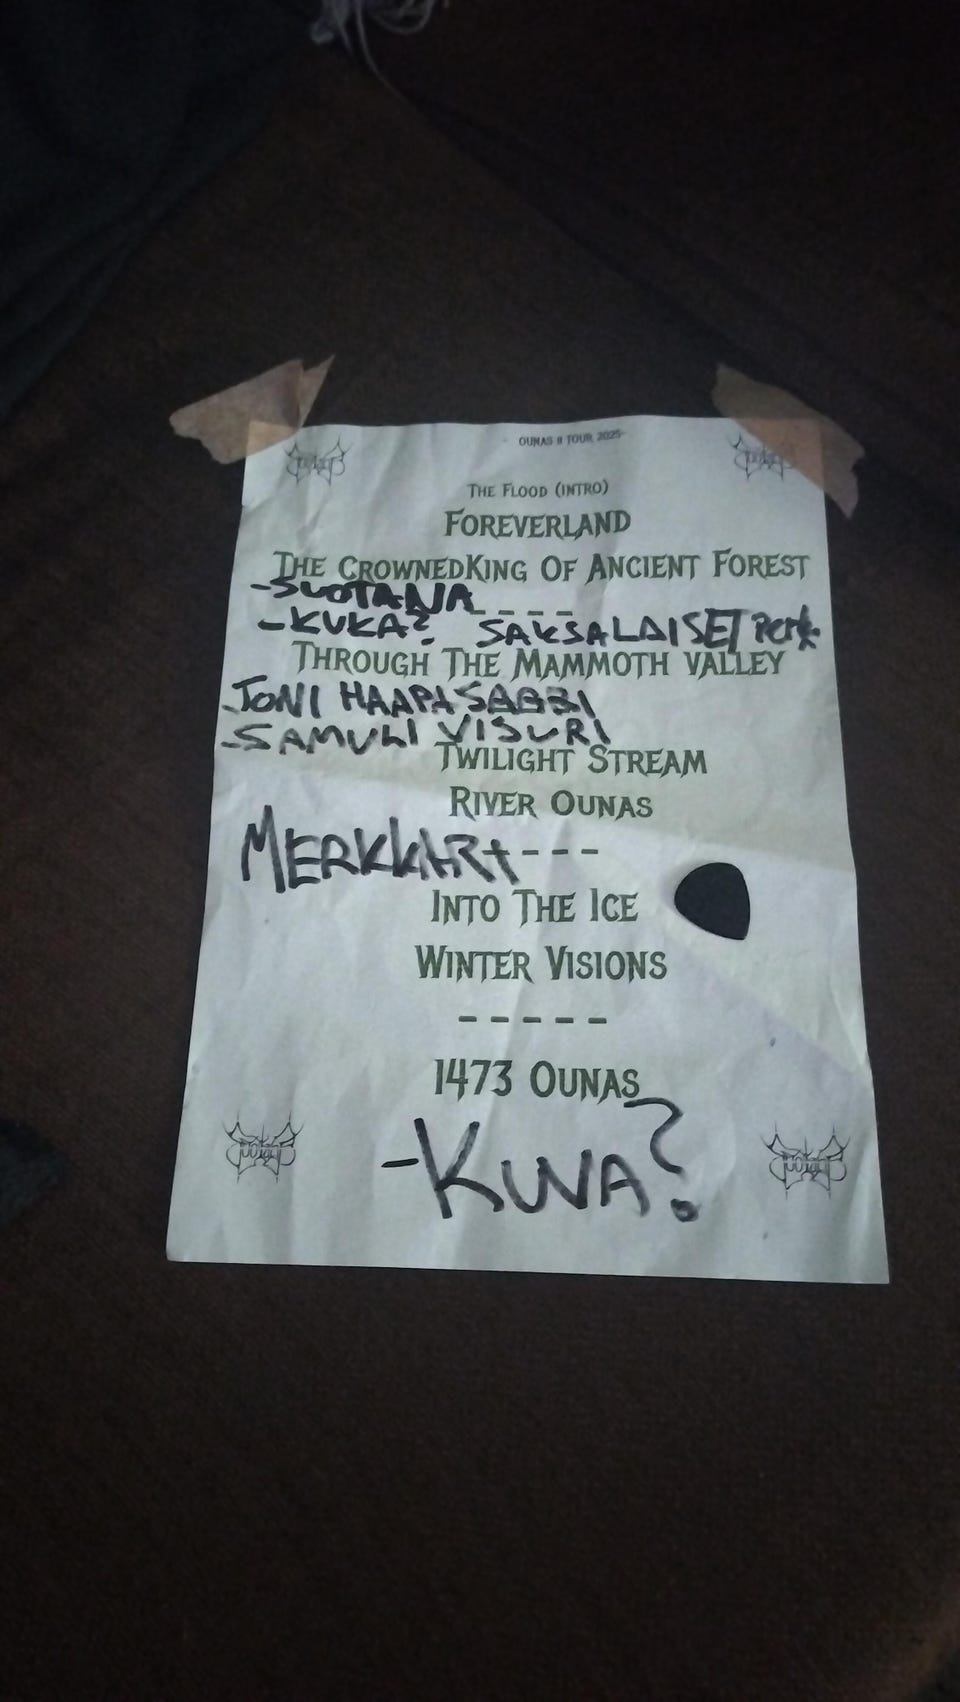 OUNAS II TOUR 2025
THE FLOOD (INTRO)
FOREVERLAND
THE CROWNEDKING OF ANCIENT FOREST
-SUOTANA ----
-KUKA? SAKSALAISET
THROUGH THE MAMMOTH VALLEY
JONI HAAPA
-SAMULI VISURI
TWILIGHT STREAM
RIVER OUNAS
---
INTO THE ICE
WINTER VISIONS
-----
1473 OUNAS